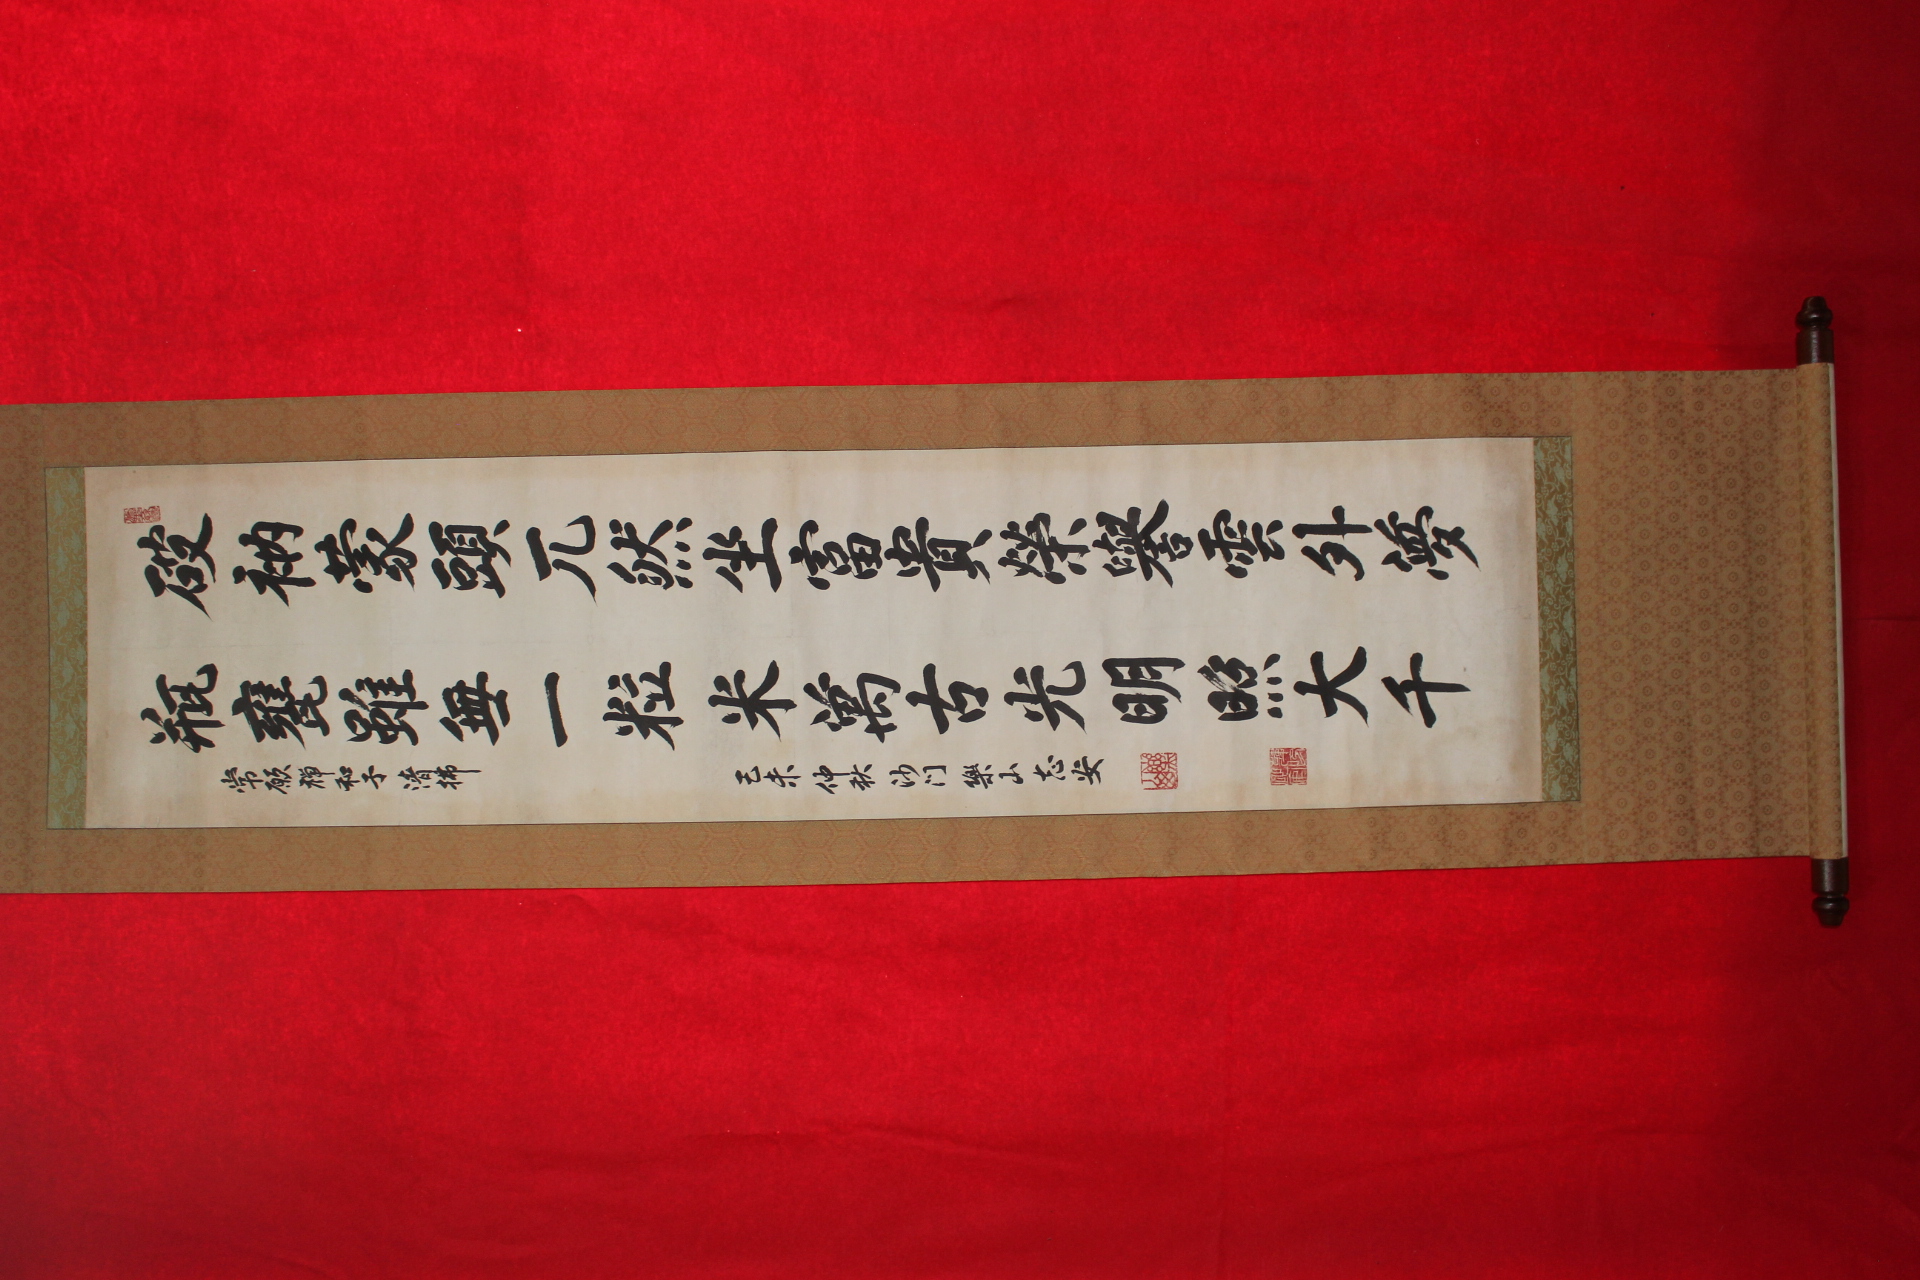 破衲蒙頭兀然坐富貴榮譽雲外夢
瓶甕雖無一粒米萬古光明照大千
常願禪和子 清拂
己未仲秋 沙门 樂山志安